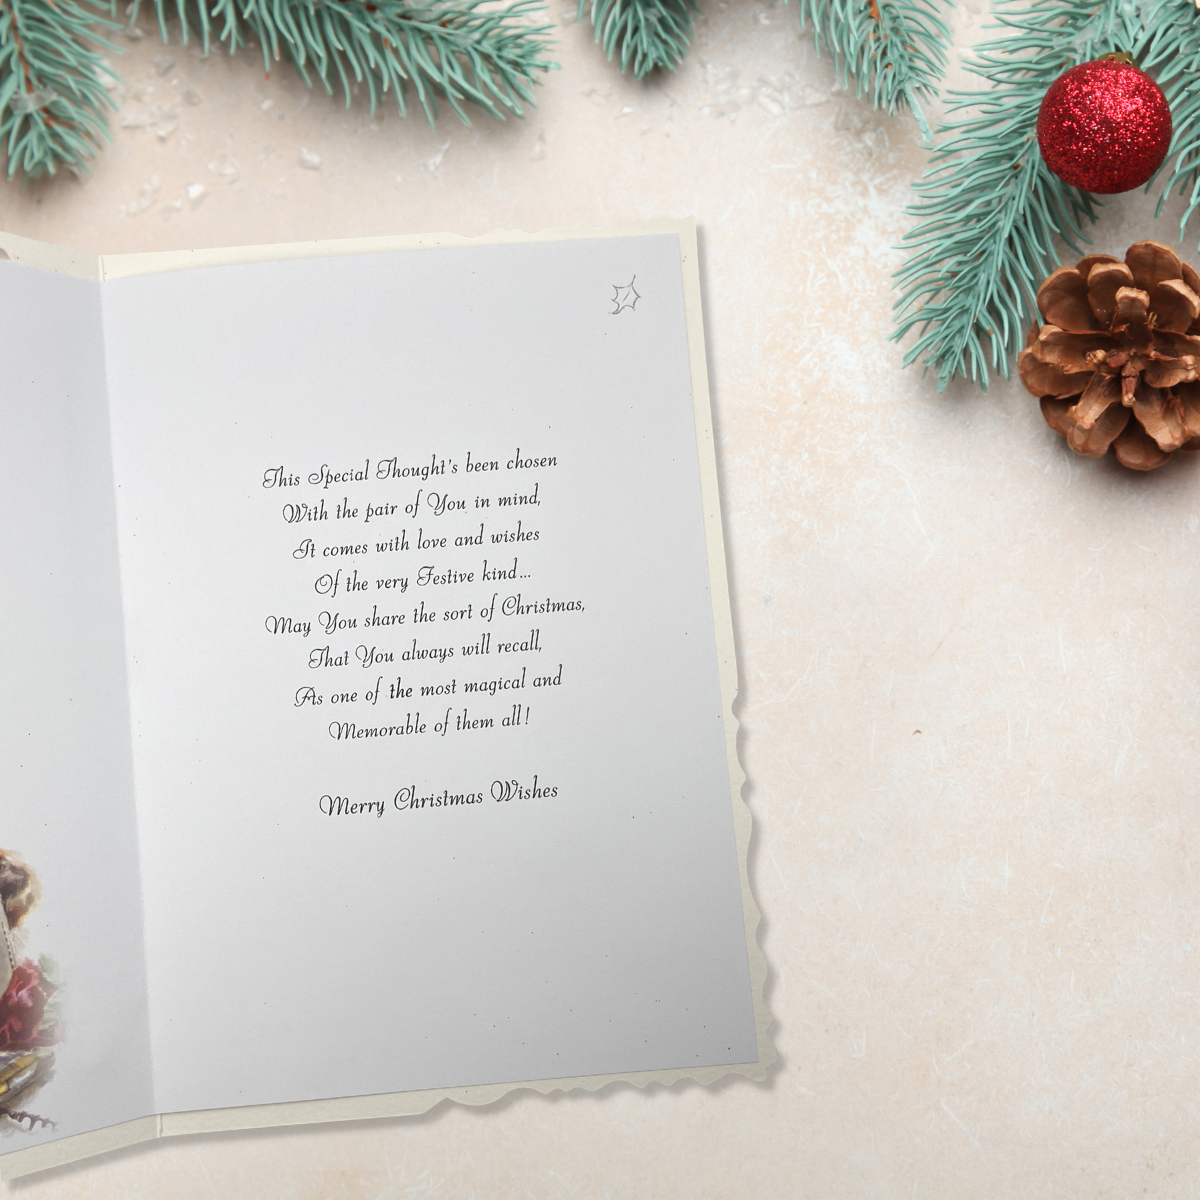 This Special Thought's been chosen
With the pair of You in mind,
It comes with love and wishes
Of the very Festive kind...
May You share the sort of Christmas,
That You always will recall,
As one of the most magical and
Memorable of them all!
Merry Christmas Wishes